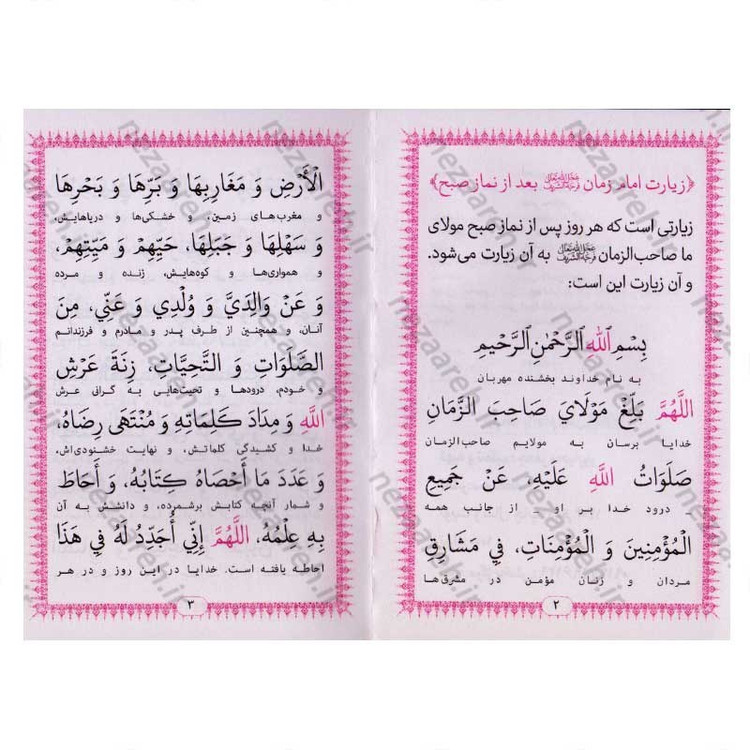 ﴿زیارت امام زمان عجل الله تعالی فرجه الشریف بعد از نماز صبح﴾
زیارتی است که هر روز پس از نماز صبح مولای
ما صاحب‌الزمان عجل الله تعالی فرجه الشریف به آن زیارت می‌شود.
و آن زیارت این است:
بِسْمِ اللهِ الرَّحْمٰنِ الرَّحْیمِ
به نام خداوند بخشنده مهربان
اَللّٰهُمَّ بَلِّغْ مَوْلَايَ صَاحِبَ الزَّمَانِ
خدایا برسان به مولایم صاحب‌الزمان
صَلَوَاتُ اللّٰهِ عَلَيْهِ، عَنْ جَمِيعِ
درود خدا بر او ـ از جانب همه
الْمُؤْمِنِينَ وَ الْمُؤْمِنَاتِ، فِي مَشَارِقِ
مردان و زنان مؤمن در مشرق‌ها
۲
الْأَرْضِ وَ مَغَارِبِهَا وَ بَرِّهَا وَ بَحْرِهَا
و مغرب‌های زمین، و خشکی‌ها و دریاهایش،
وَ سَهْلِهَا وَ جَبَلِهَا، حَيِّهِمْ وَ مَيِّتِهِمْ،
و همواری‌ها و کوه‌هایش، زنده و مرده
وَ عَنْ وَالِدَيَّ وَ وُلْدِي وَ عَنِّي، مِنَ
آنان، و همچنین از طرف پدر و مادرم و فرزندانم
الصَّلَوَاتِ وَ التَّحِيَّاتِ، زِنَةَ عَرْشِ
و خودم، درودها و تحیت‌هایی به گرانی عرش
اللّٰهِ وَ مِدَادَ كَلِمَاتِهِ وَ مُنْتَهَى رِضَاهُ،
خدا و کشیدگی کلماتش، و نهایت خشنودی‌اش،
وَ عَدَدَ مَا أَحْصَاهُ كِتَابُهُ، وَ أَحَاطَ
و شمار آنچه کتابش برشمرده، و دانشش به آن
بِهِ عِلْمُهُ، اَللّٰهُمَّ إِنِّي أُجَدِّدُ لَهُ فِي هَذَا
احاطه یافته است. خدایا در این روز و در هر
۳
nezaareh.ir